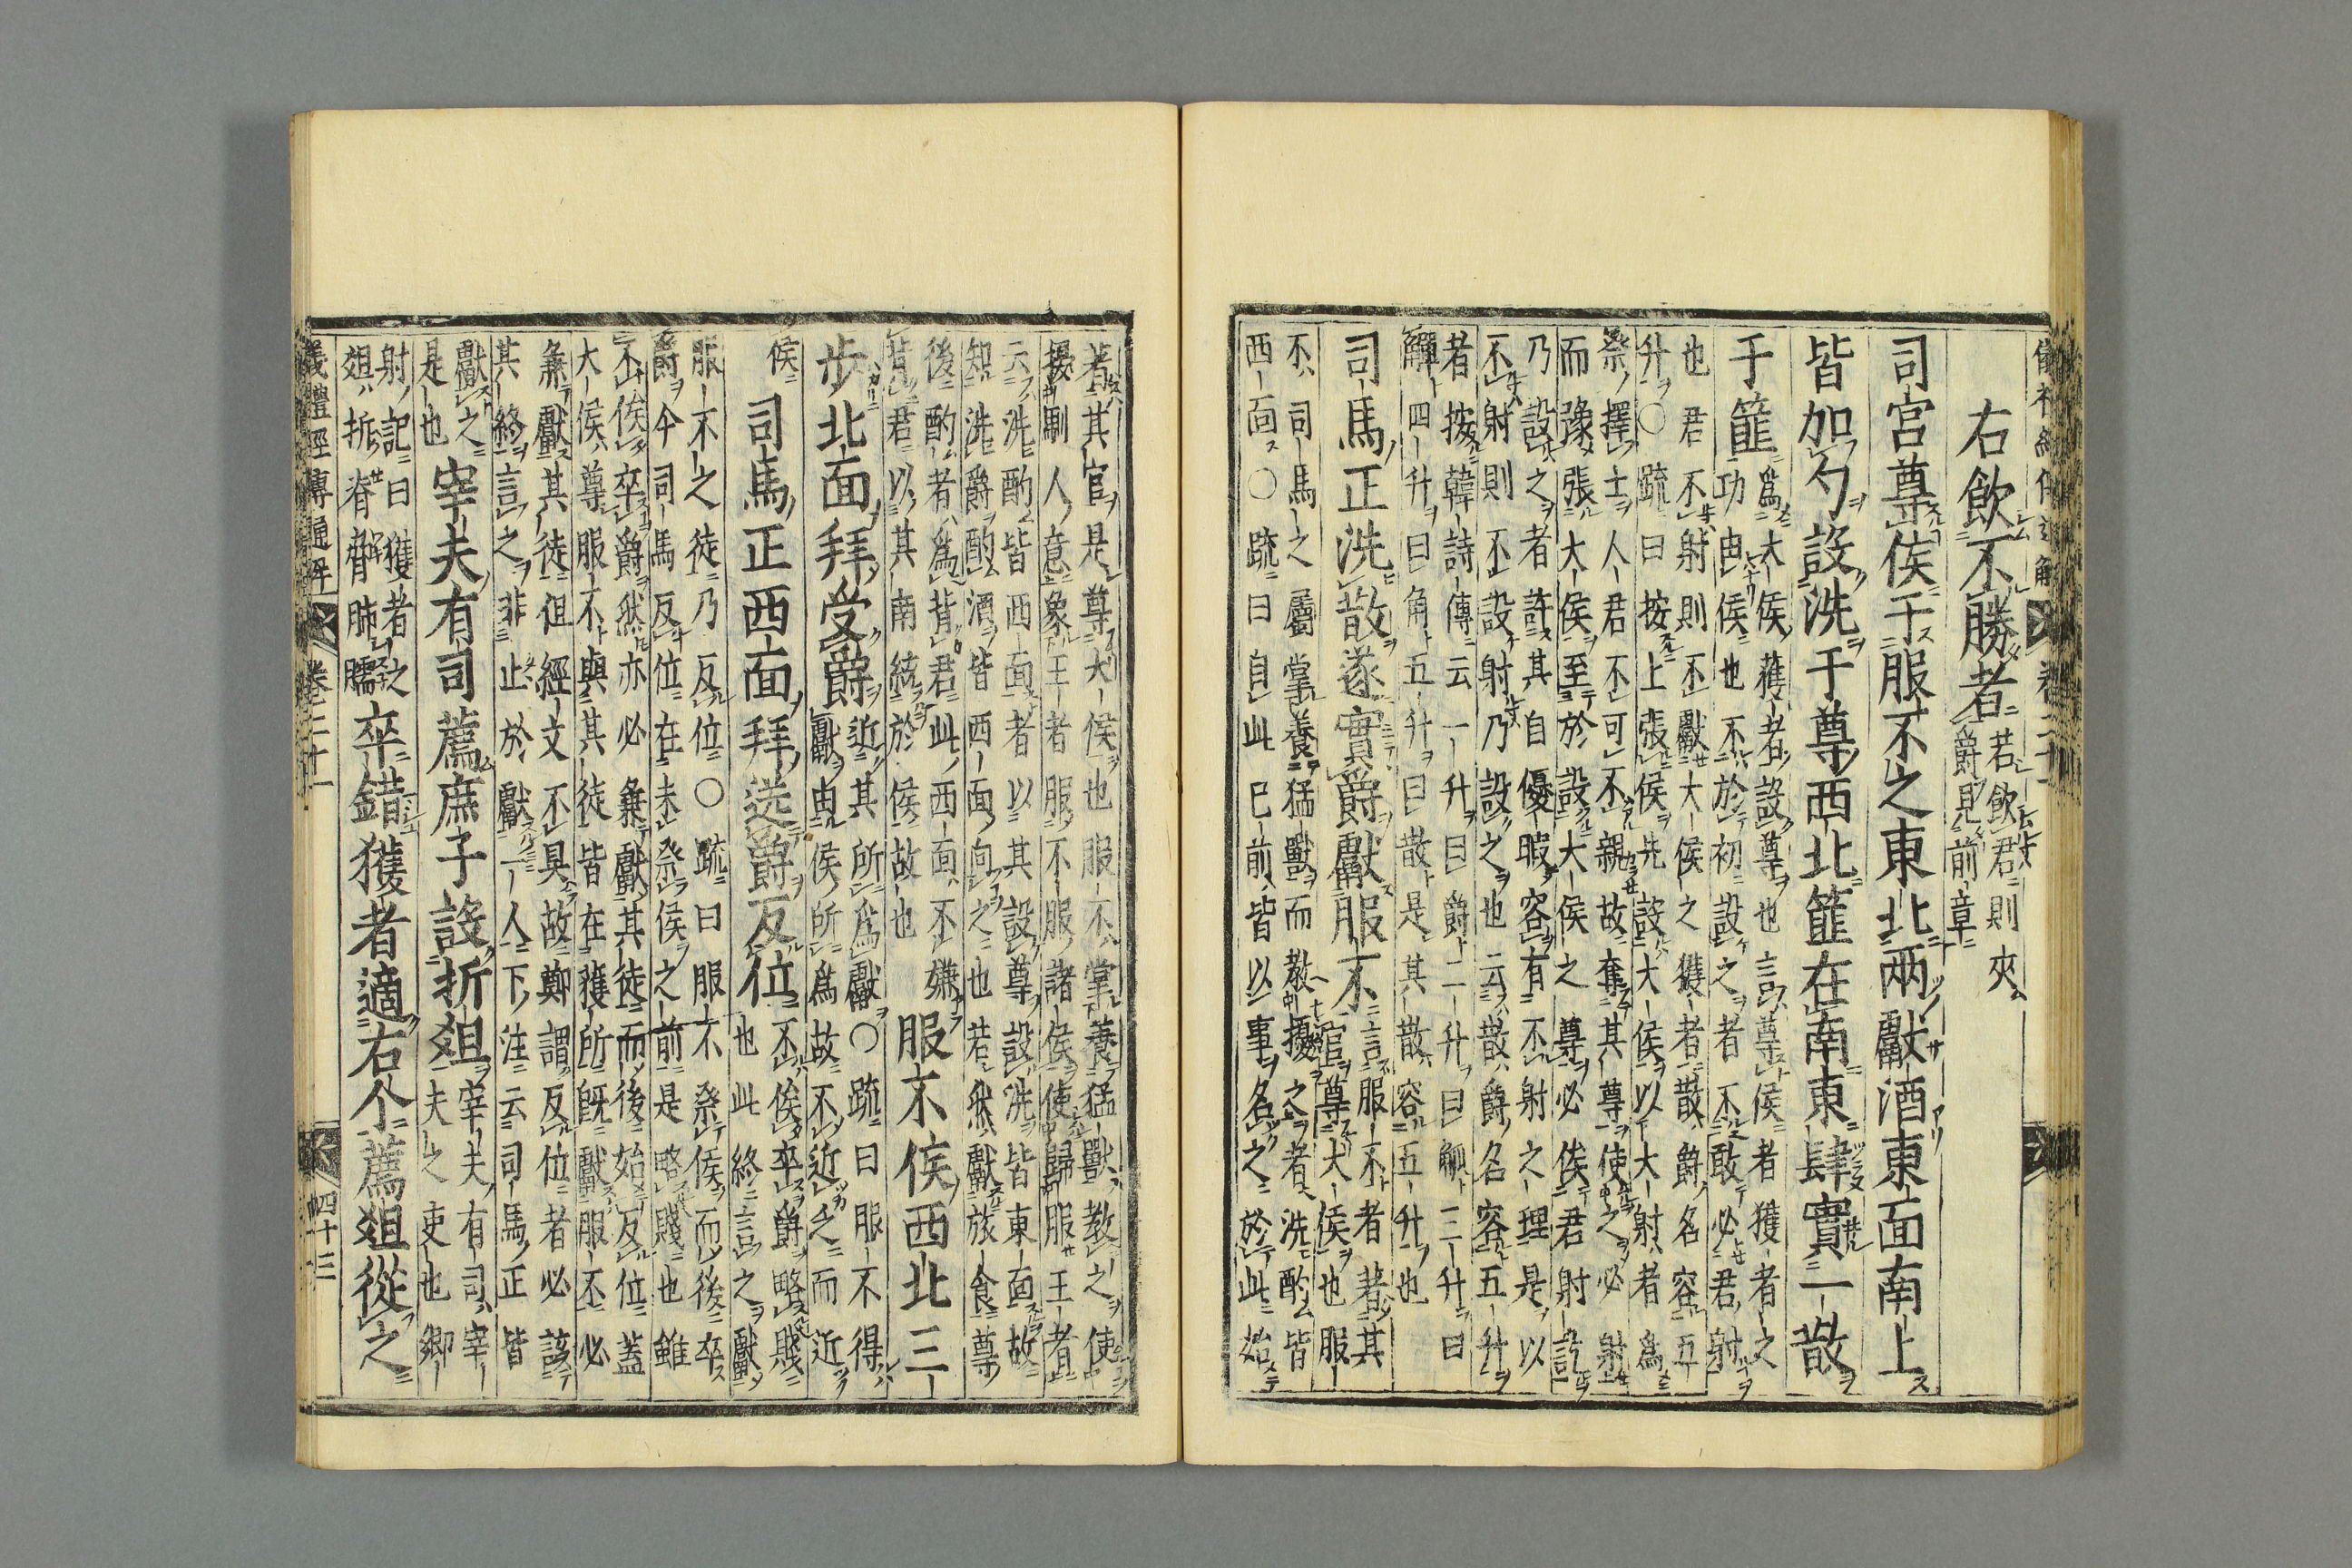 右飲不勝者
若飲君則夾
爵見前章
司宮尊侯于服不之東北兩獻酒東面南上
皆加勺設洗于尊西北篚在南東肆實一散
于篚
爲大侯獲者設尊也言尊侯者獲者之
功由侯也不於初設之者不敢必君射
也君不射則不獻大侯之獲者散爵名容五
升○疏曰按上張侯先設大侯以大射者爲
祭擇士人君不可不親故奪其尊使之必射
而豫張大侯至於設大侯之尊必俟君射訖
乃設之者許其自優暇容有不射之理是以
不射則不設射乃設之也云散爵名容五升
者按韓詩傳云一升曰爵二升曰觚三升曰
觶四升曰角五升曰散是其散容五升也
司馬正洗散遂實爵獻服不
言服不者著其
官尊大侯也服
不司馬之屬掌養猛獸而教擾之者洗酌皆
西面○疏曰自此已前皆以事名之於此始
著其官是尊大侯也服不掌養猛獸教之使
擾馴人意象王者服不服諸侯使歸服王者
云洗酌皆西面者以其設尊設洗皆東面故
知洗爵酌酒皆西面向之也若然獻旅食尊
後酌者爲背君此西面不嫌
背君以其南統於侯故也
服不侯西北三
步北面拜受爵
近其所爲獻○疏曰服不得
獻由侯所爲故不近乏而近
侯
司馬正西面拜送爵反位
不俟卒爵略賤
也此終言之獻
服不之徒乃反位○疏曰服不祭侯而後卒
爵今司馬反位在未祭侯之前是略賤也雖
不俟卒爵然亦必兼獻其徒而後始反位蓋
大侯尊服不與其徒皆在獲所既獻服不必
兼獻其徒但經文不具故鄭謂反位者必該
其終言之非止於獻一人下注云司馬正皆
獻之
是也
宰夫有司薦庶子設折俎
宰夫有司宰
夫之吏也鄉
射記曰獲者之
俎折脊脅肺臑
卒錯獲者適右个薦俎從之
儀禮經傳通解 卷二十一 四十三